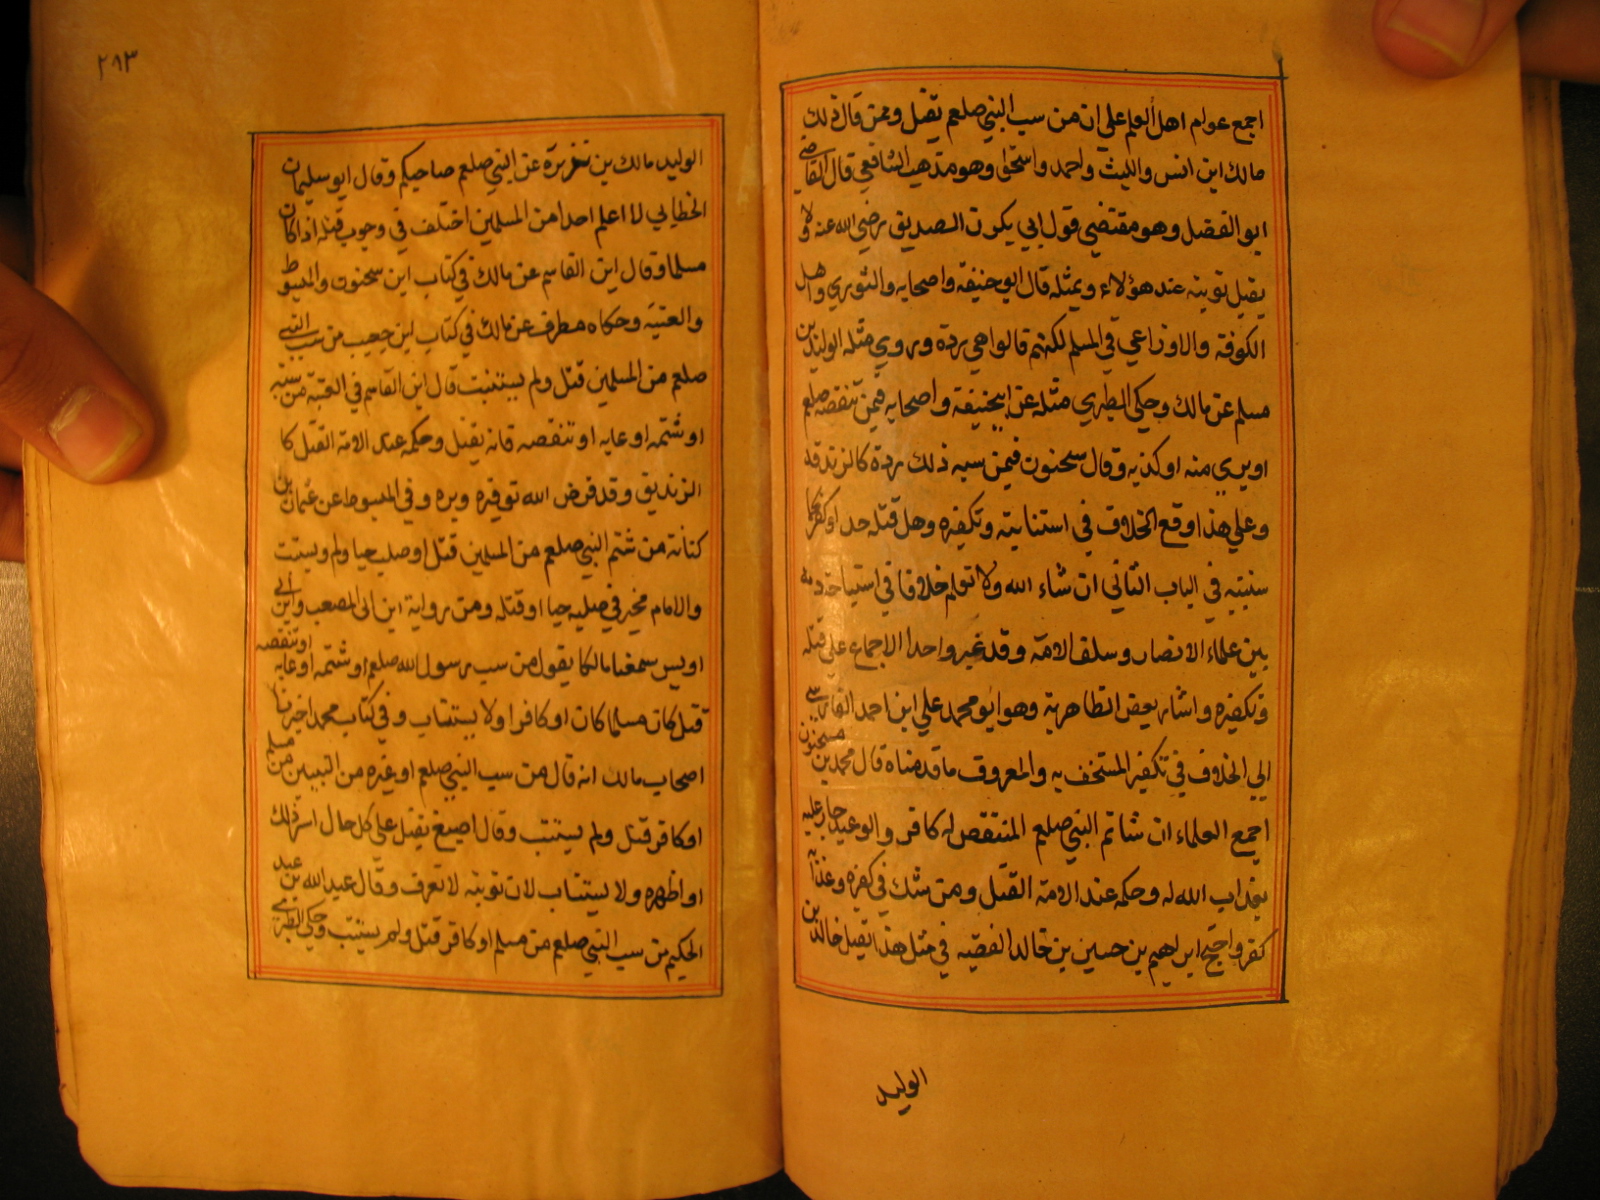 اجمع عوام اهل العلم علي ان من سب النبي صلعم يقتل وممن قال ذلك
مالك ابن انس والليث واحمد واسحق وهو مذهب الشافعي قال القاضي
ابو الفضل وهو مقتضي قول ابي بكرن الصديق رضي الله عنه ولا
يقبل توبته عند هؤلاء وبمثله قال ابو حنيفة واصحابه والثوري واهل
الكوفة والاوزاعي في المسلم لكنهم قالوا هي ردة وروي مثله الوليد بن
مسلم عن مالك وحكي الطبري مثله عن ابيحنيفة واصحابه فيمن تنقصه صلعم
او بري منه او كذبه وقال سحنون فيمن سبه ذلك ردة كالزندقة
وعلي هذا وقع الخلاف في استتابته وتكفيره وهل قتله حد او كفر كما
سنبينه في الباب الثاني ان شاء الله ولا نعلم خلافا في استباحة دمه
بين علماء الامصار وسلف الامة وقد غير واحد الاجماع علي قتله
وتكفيره واشار بعض الظاهرية وهو ابو محمد علي ابن احمد الفارسي
الي الخلاف في تكفير المستخف به والمعروف ما قدمناه قال محمد بن سحنون
اجمع العلماء ان شاتم النبي صلعم المنتقص له كافر والوعيد جار عليه
بعذاب الله له وحكمه عند الامة القتل ومن شك في كفره وعذابه
كفر واحتج ابراهيم بن حسين بن خالد الفقيه في مثل هذا بقتل خالد بن
الوليد
٢٨٣
الوليد مالك بن نويرة عن النبي صلعم صاحبكم وقال ابو سليمان
الخطابي لا اعلم احدا من المسلمين اختلف في وجوب قتله اذا كان
مسلما وقال ابن القاسم عن مالك في كتاب ابن سحنون والمبسوط
والعتبية وحكاه مطرف عن مالك في كتاب ابن حبيب من سب النبي
صلعم من المسلمين قتل ولم يستتب قال ابن القاسم في العتبية من سبه
او شتمه او عابه او تنقصه فانه يقتل وحكمه عند الامة القتل كا
الزنديق وقد فرض الله توقيره وبره وفي المبسوط عن عثمان بن
كنانة من شتم النبي صلعم من المسلمين قتل او صلب حيا ولم يستتب
والامام مخير في صلبه حيا او قتله ومن رواية ابن ابي المصعب وابن ابي
اويس سمعنا مالكا يقول من سب رسول الله صلعم او شتمه او عابه او تنقصه
قتل كان مسلما كان او كافرا ولا يستتاب وفي كتاب محمد اخبرنا
اصحاب مالك انه قال من سب النبي صلعم او غيره من النبيين من مسلم
او كافر قتل ولم يستتب وقال اصبغ يقتل علي كل حال اسر ذلك
او اظهره ولا يستتاب لان توبته لا تعرف وقال عبد الله بن عبد
الحكيم من سب النبي صلعم من مسلم او كافر قتل ولم يستتب وحكي الطبري